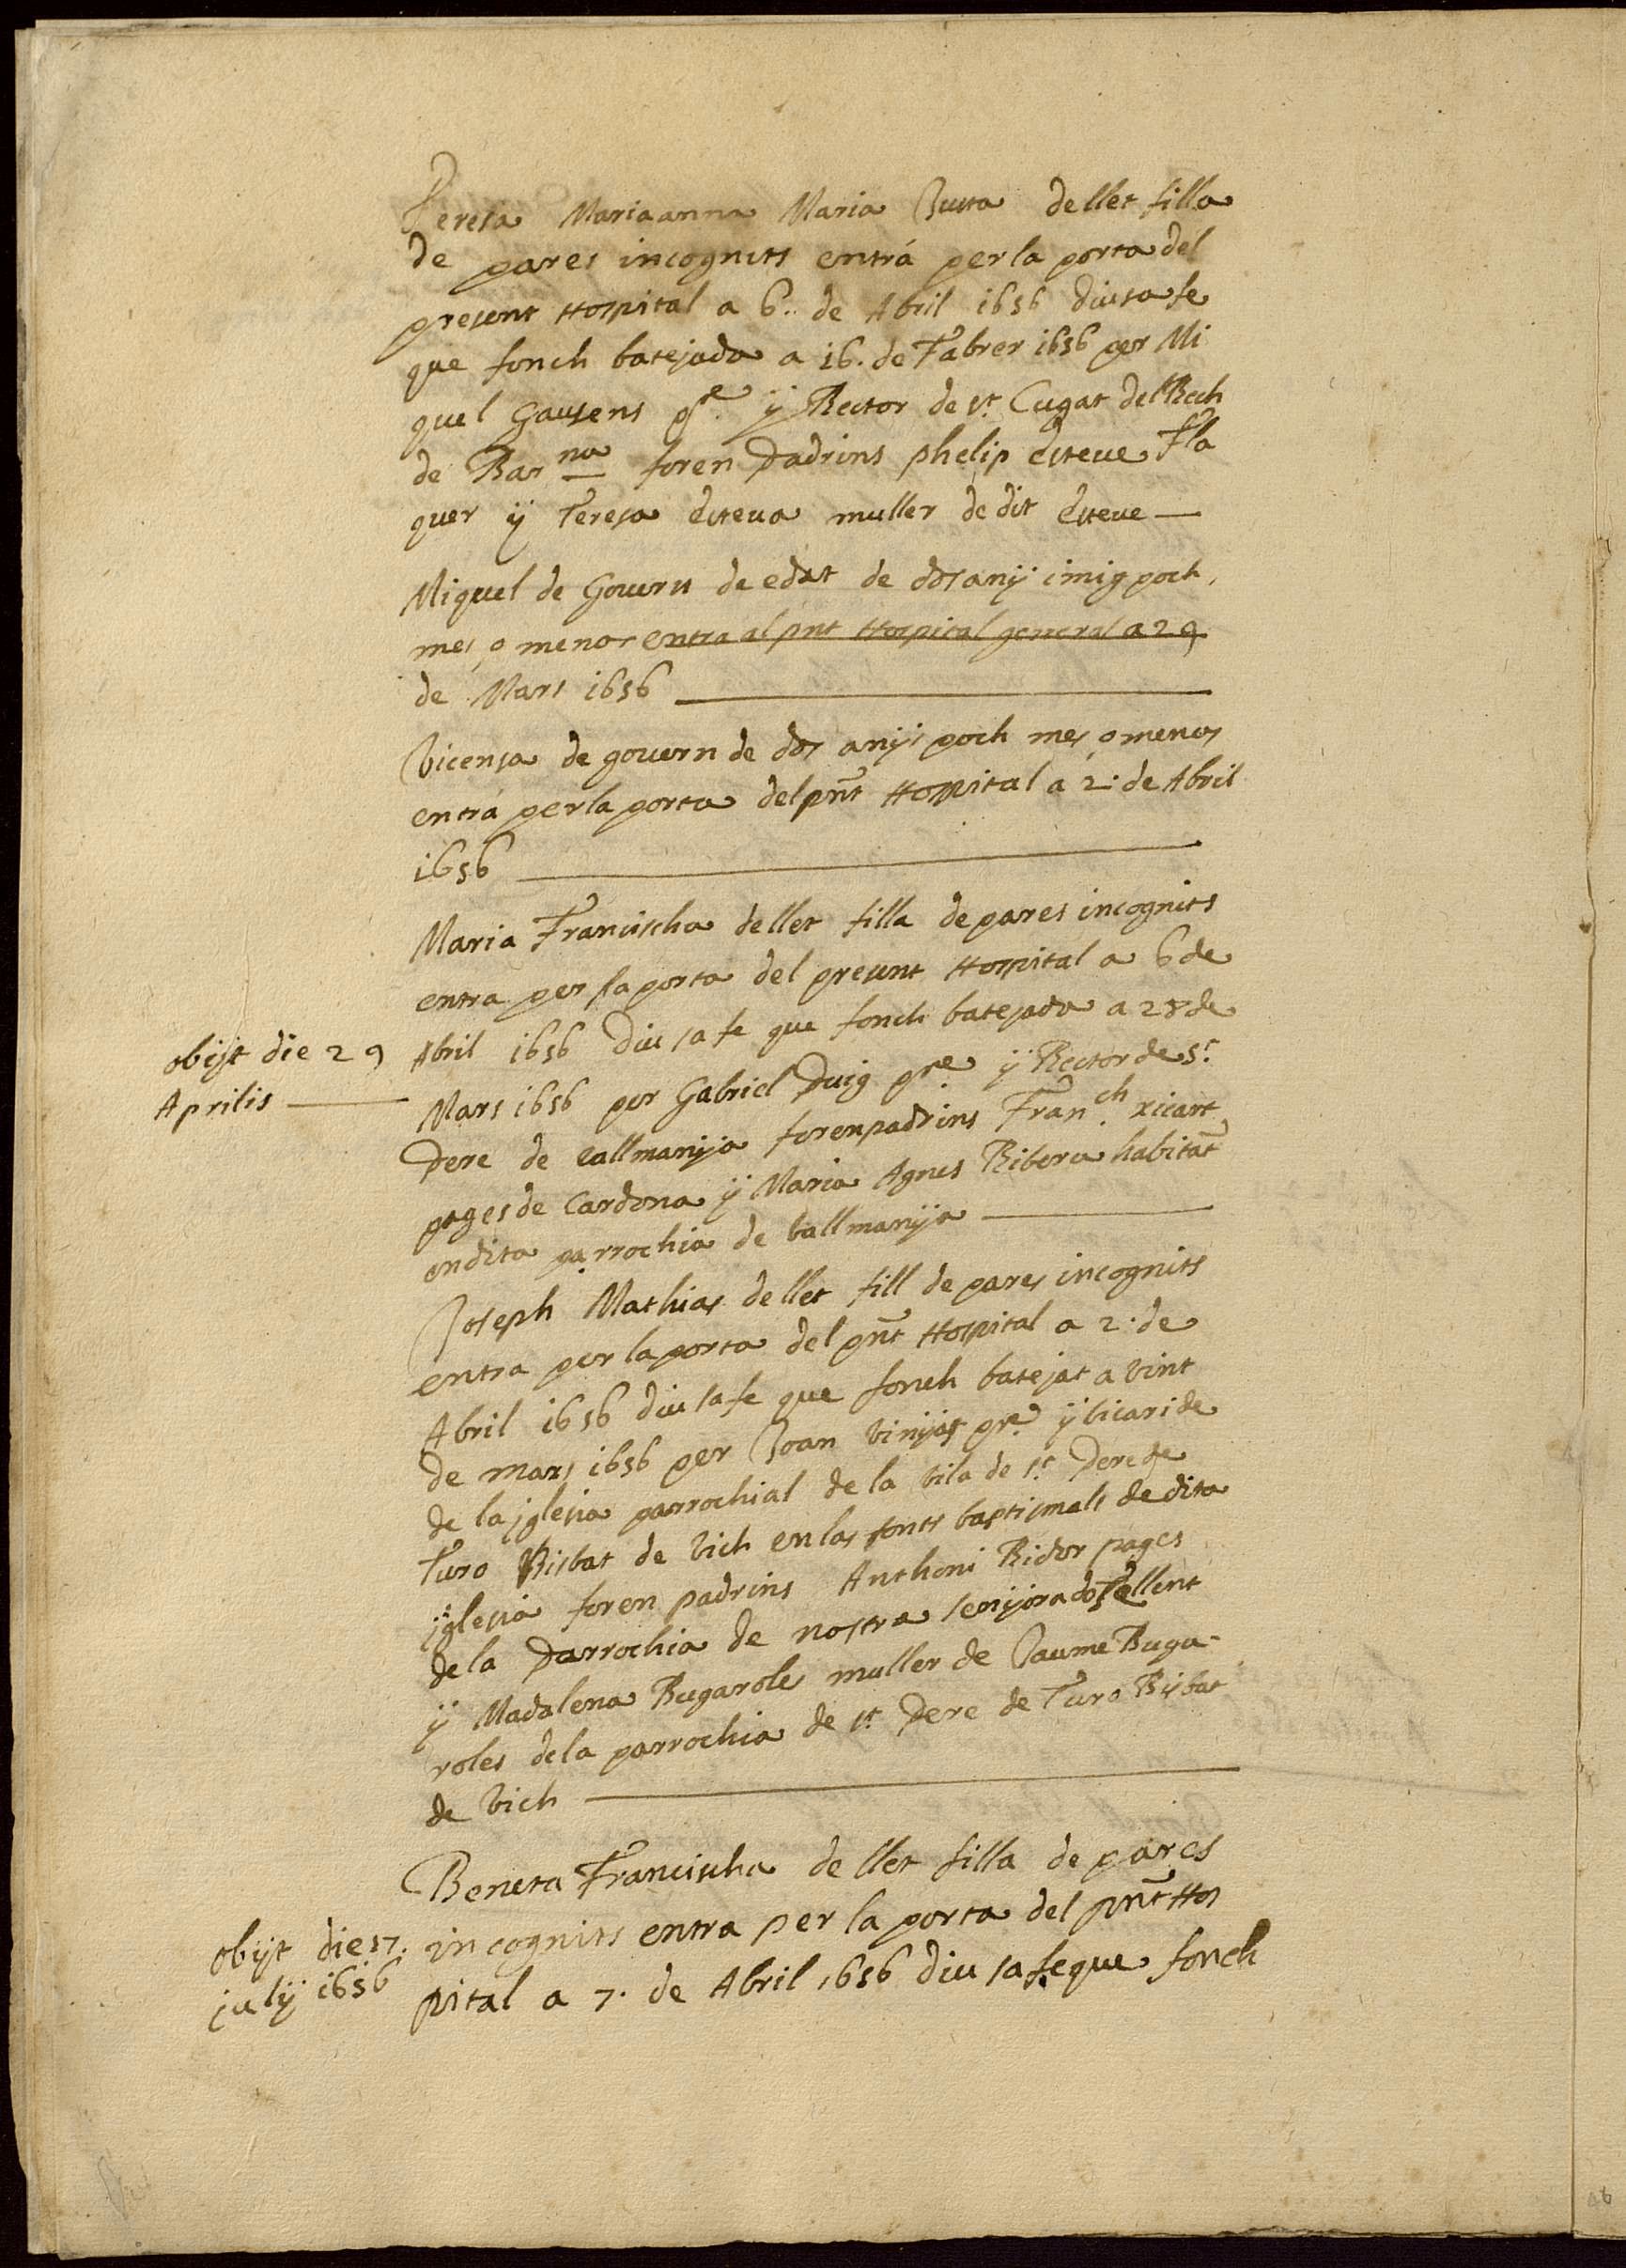 Teresa Maria anna Maria Justa de llet filla
de pares incognits entrá per la porta del
present Hospital a 6.. de Abril 1656 diu sa fe
que fonch batejada a 16. de Fabrer 1656 per Mi
quel Gausens pre. ÿ Rector de st. Cugat del Rech
de Barna foren Padrins phelip esteve Fla
quer ÿ Teresa Esteva muller de dit Esteve —
Miquel de Govern de edat de dos anÿ i mig poch
mes o menos entra al pnt Hospital general a 29
de Mars 1656
Vicensa de govern de dos anÿs poch mes o menos
entrá per la porta del pnt Hospital a 2. de Abril
1656
Maria Francischa de llet filla de pares incognits
entra per la porta del present Hospital a 6 de
obijt die 29
Aprilis
Abril 1656 diu sa fe que fonch batejada a 28 de
Mars 1656 per Gabriel Puig pre. ÿ Rector de st.
Pere de Vallmanÿa foren padrins Franch. xicart
pages de Cardona ÿ Maria Agnes Ribera habitat
en dita parrochia de vallmanÿa
Joseph Mathias de llet fill de pares incognits
entra per la porta del pnt Hospital a 2. de
Abril 1656 diu sa fe que fonch batejat a vint
de mars 1656 per Joan vinÿas pre. ÿ vicari de
de la iglesia parrochial de la vila de st. Pere de
Turo Bisbat de Vich en las fonts baptismals de dita
iglesia foren padrins Anthoni Ridor pages
de la Parrochia de nostra senÿora dosTellent
ÿ Madalena Bugaroles muller de Jaume Buga-
roles de la parrochia de st. Pere de Turo Bisbat
de Vich
Beneta Francischa de llet filla de pares
obijt die 17.
julÿ 1656
incognits entra per la porta del pnt Hos
pital a 7. de Abril 1656 diu sa fe que fonch